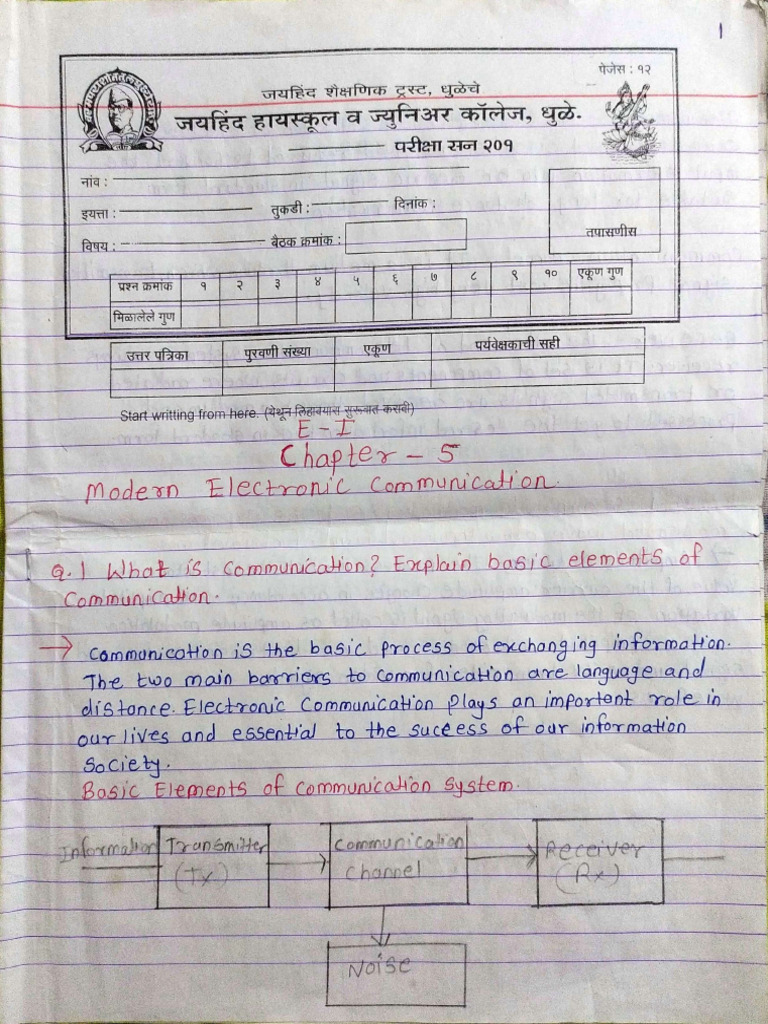 1
पेजेस : १२
जयहिंद शैक्षणिक ट्रस्ट, धुळेचे
जयहिंद हायस्कूल व ज्युनिअर कॉलेज, धुळे.
परीक्षा सन २०१
नांव :
इयत्ता : तुकडी : दिनांक :
विषय : बैठक क्रमांक :
तपासणीस
प्रश्न क्रमांक १ २ ३ ४ ५ ६ ७ ८ ९ १० एकूण गुण
मिळालेले गुण
उत्तर पत्रिका पुरवणी संख्या एकूण पर्यवेक्षकाची सही
Start writting from here. (येथून लिहावयास सुरूवात करावी)
E - I
Chapter - 5
Modern Electronic Communication.
Q.1 What is communication? Explain basic elements of
Communication.
→ Communication is the basic process of exchanging information.
The two main barriers to communication are language and
distance. Electronic Communication plays an importent role in
our lives and essential to the success of our information
society.
Basic Elements of communication system.
Information Transmitter (Tx) Communication Channel Receiver (Rx)
Noise